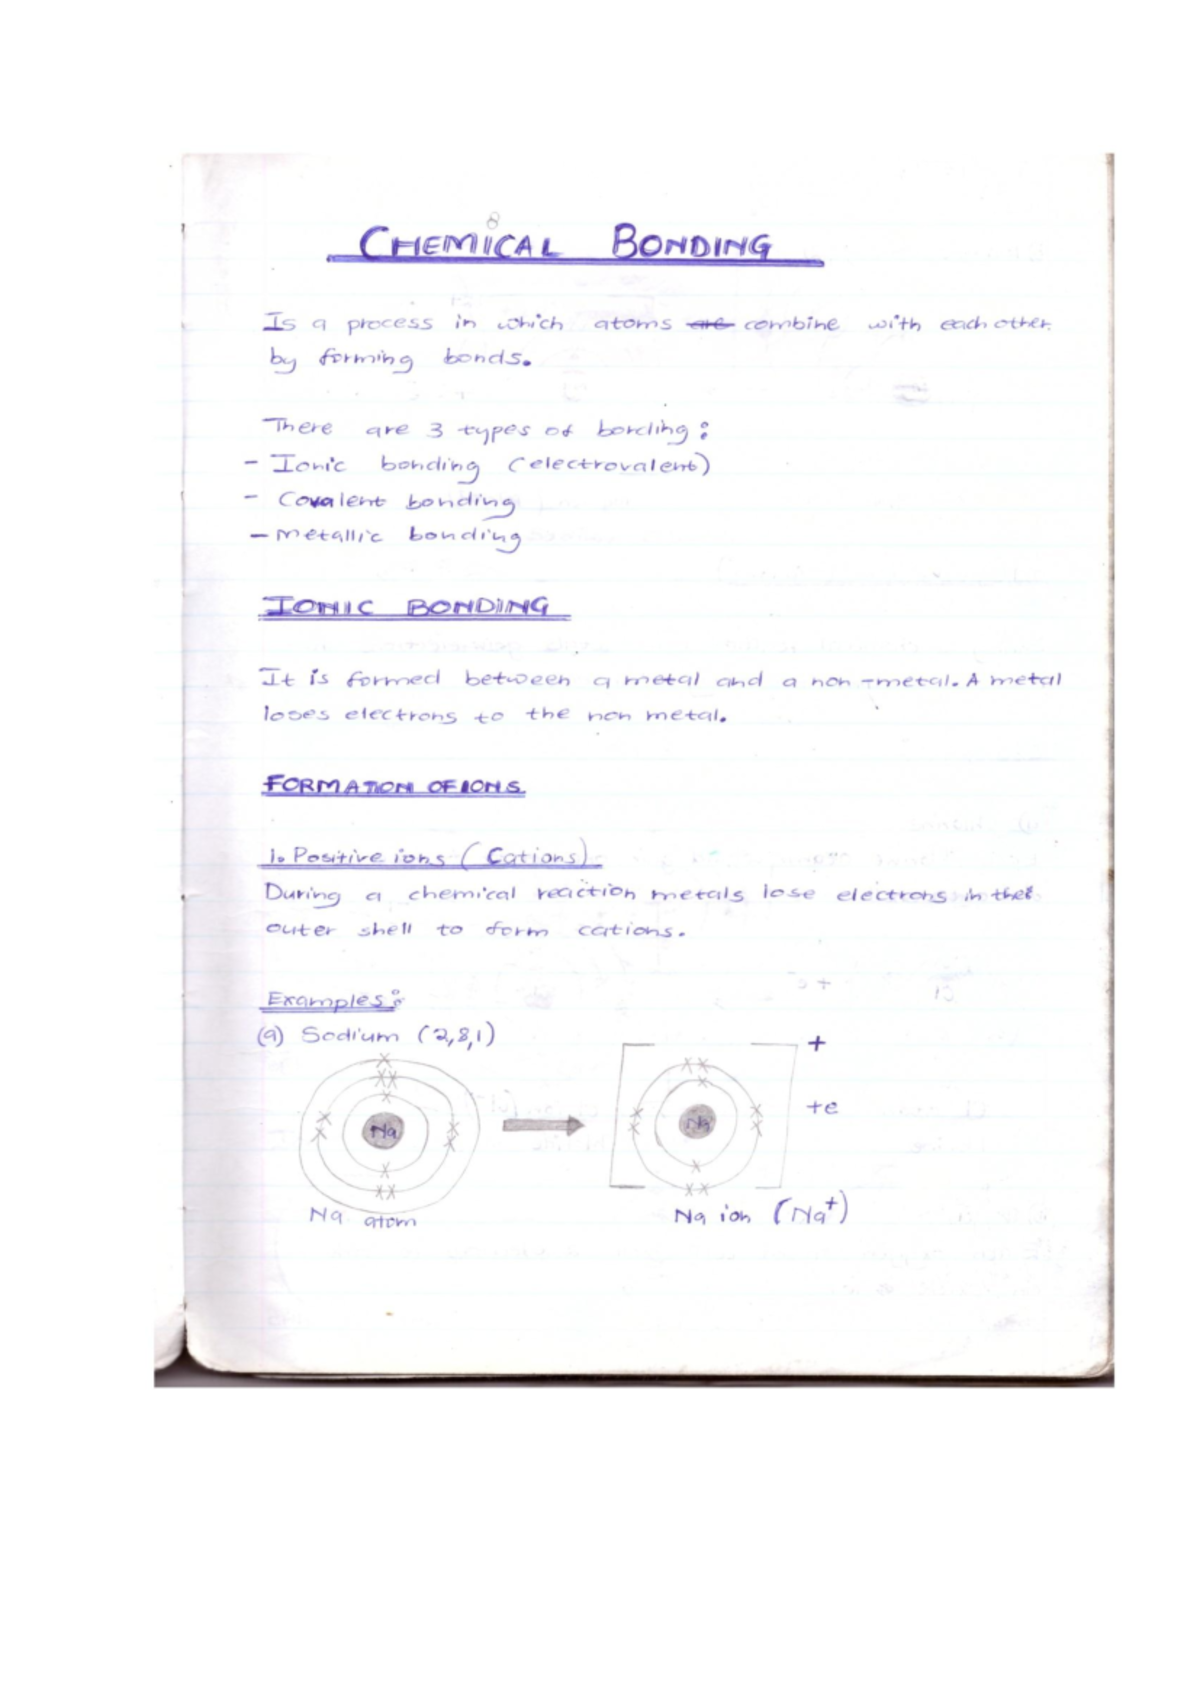 8
CHEMICAL BONDING
Is a process in which atoms are combine with each other
by forming bonds.
There are 3 types of bonding:
- Ionic bonding (electrovalent)
- Covalent bonding
- Metallic bonding
IONIC BONDING
It is formed between a metal and a non-metal. A metal
loses electrons to the non metal.
FORMATION OF IONS
1. Positive ions (Cations)
During a chemical reaction metals lose electrons in their
outer shell to form cations.
Examples:
(a) Sodium (2,8,1)
+
+e
Na
Na
Na atom
Na ion (Na⁺)